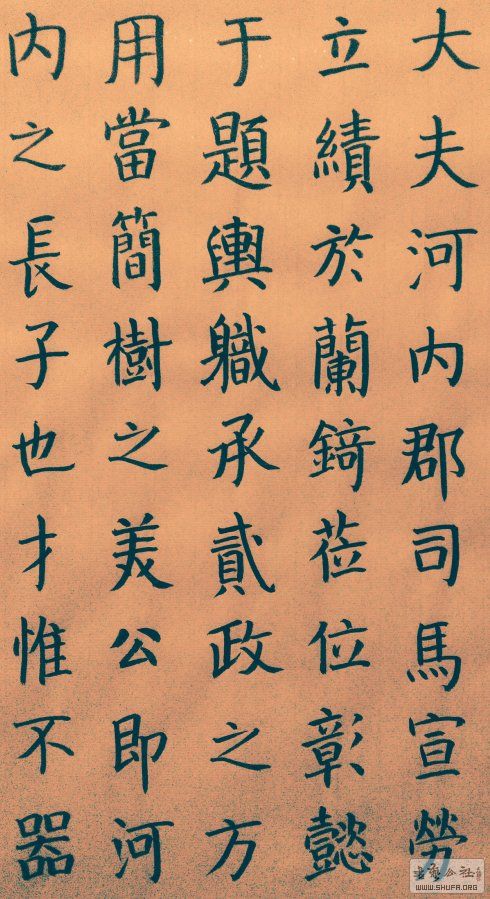 大夫河内郡司馬宣勞
立績於蘭錡莅位彰懿
于題輿職承貳政之方
用當簡樹之美公即河
内之長子也才惟不器
WWW.SHUFA.ORG